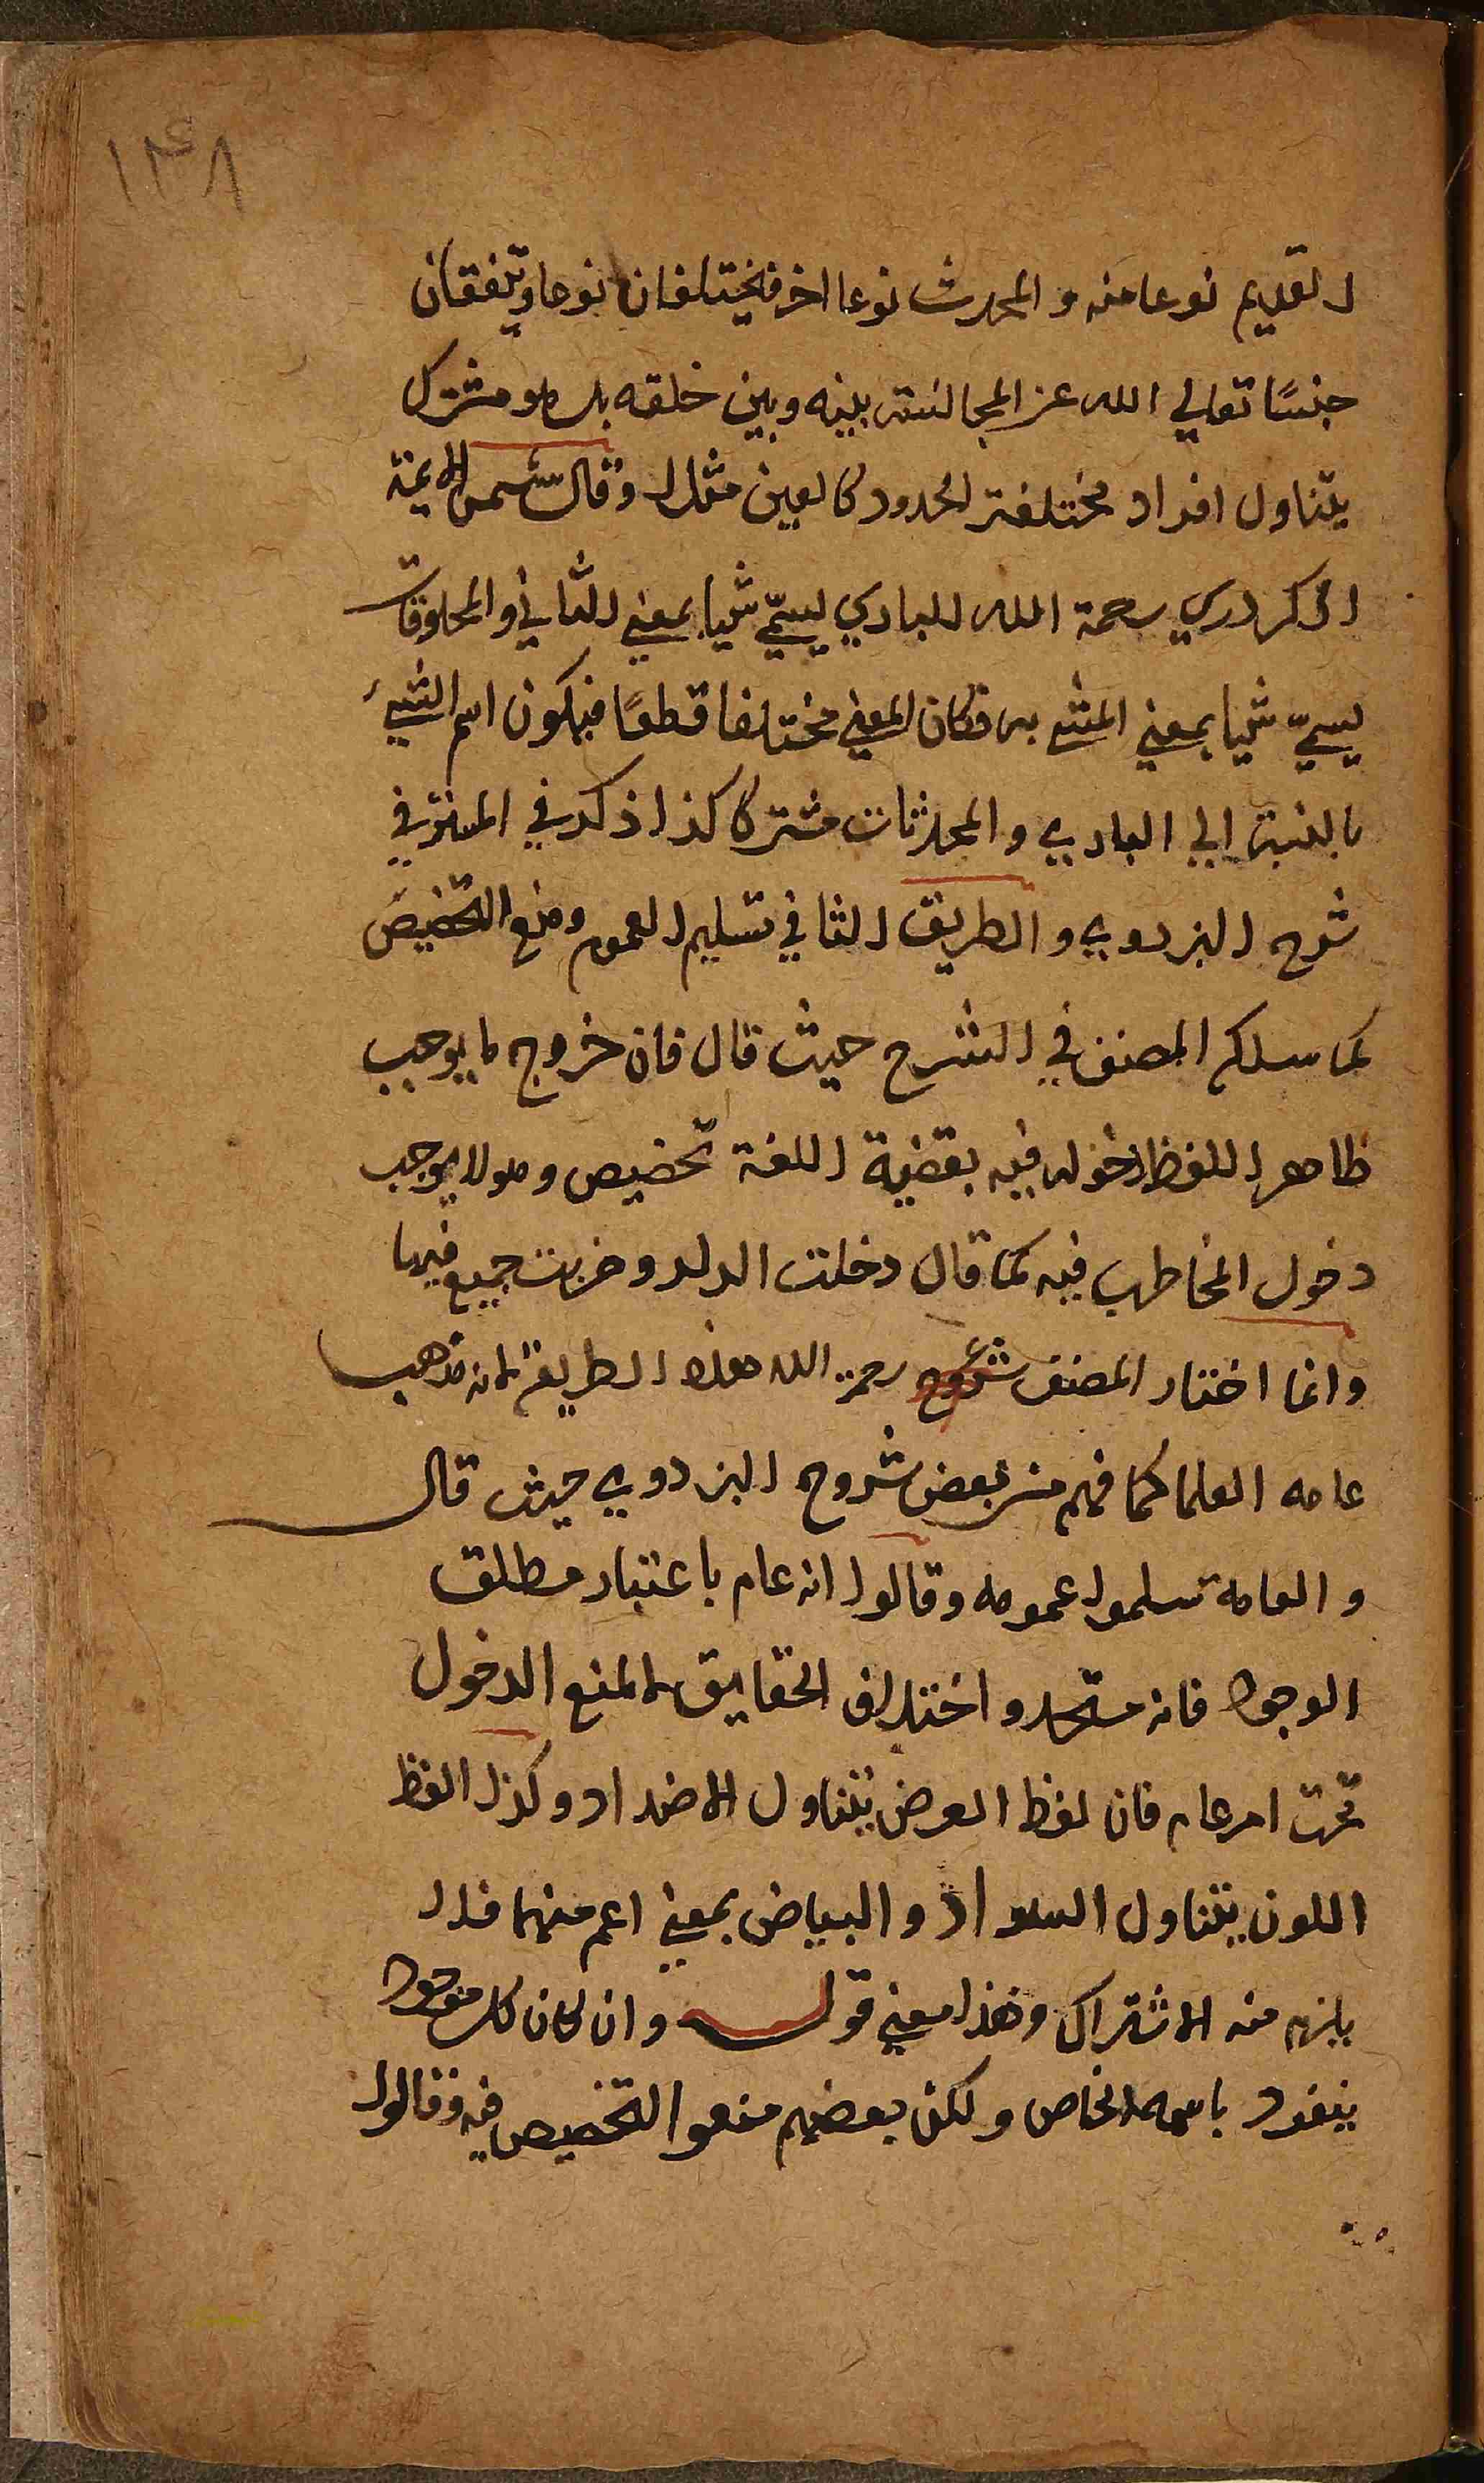 ١٣٨
القديم نوعا منه والمحدث نوعا اخر فيختلفان نوعا ويتفقان
جنسًا تعالي الله عن المجالسته بينه وبين خلقه بل هو مشترك
يتناول افراد مختلفة الحدود كالعين مثلا وقال شمس الايمة
الكردري رحمة الله الباري يسمّي شيا بمعني الشاني والمخلوقات
يسمّي شيا بمعني المشي به فكان المعني مختلفا قطعًا فيكون اسم الشيئ
بالنسبة الي الباري والمحدثات مشتركا كذا ذكر في
شرح البزدوي والطريق الثاني تسليم العموم ومنع التخصيص
كما سلكه المصنف في الشرح حيث قال فان خروج ما يوجب
ظاهر اللفظ دخوله فيه بقضية اللغة تخصيص وهو لا يوجب
دخول المخاطب فيه كما قال دخلت الدار وضربت جميع فيها
وانما اختار المصنف رحمة الله هذه الطريقة لانه مذهب
عامه العلما كما فهم من بعض شروح البزدوي حيث قال
والعامة سلموا عمومه وقالوا انه عام باعتبار مطلق
الوجود فانه متحد واختلاف الحقايق لا المنع الدخول
تحت امر عام فان لفظ العرض يتناول الاضداد وكذا لفظ
اللون يتناول السواد والبياض بمعني اعم منهما فلا
يلزم منه الاشتراك وهذا معني قوله وان كان كل موجود
ينفرد باسمه الخاص ولكن بعضهم منعوا التخصيص فيه وقالوا